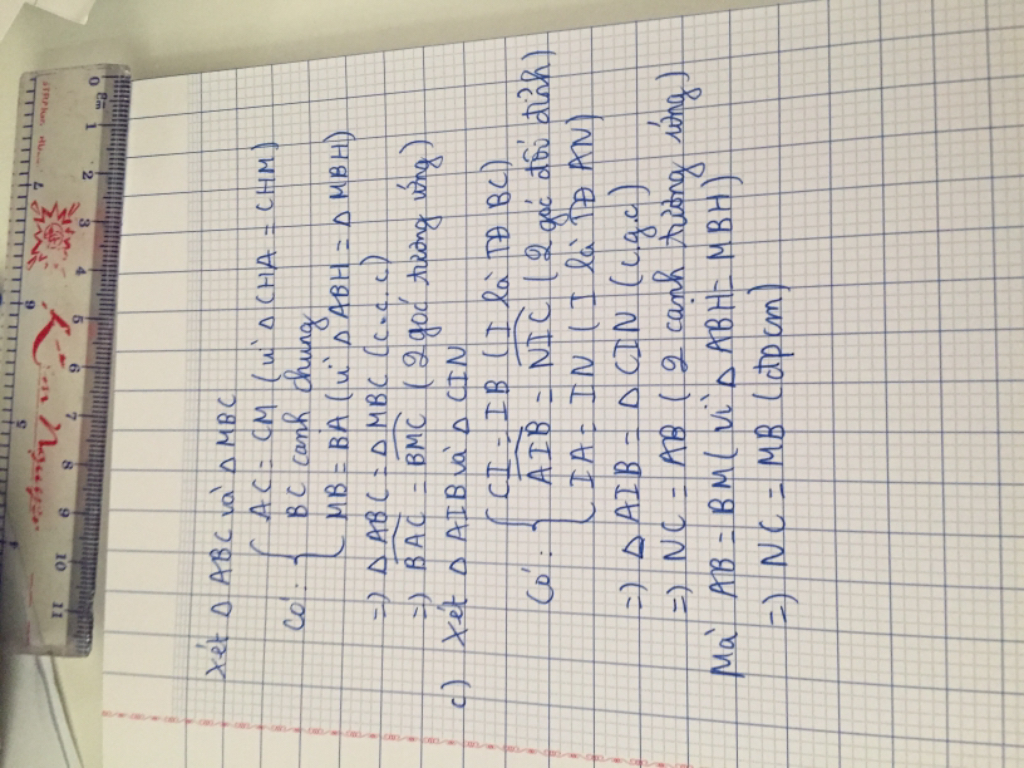 Xét △ ABC và △ MBC
Có: { AC = CM (vì △ CHA = CHM)
BC cạnh chung
MB = BA (vì △ ABH = △ MBH)
=) △ ABC = △ MBC (c.c.c)
=) BAC = BMC (2 góc tương ứng)
c) Xét △ AIB và △ CIN
Có: { CI = IB (I là TĐ BC)
AIB = NIC (2 góc đối đỉnh)
IA = IN (I là TĐ AN)
=) △ AIB = △ CIN (cgc)
=) NC = AB (2 cạnh tương ứng)
Mà AB = BM (vì △ ABH = MBH)
=) NC = MB (đpcm)
0 cm 1 2 3 4 5 6 7 8 9 10 11